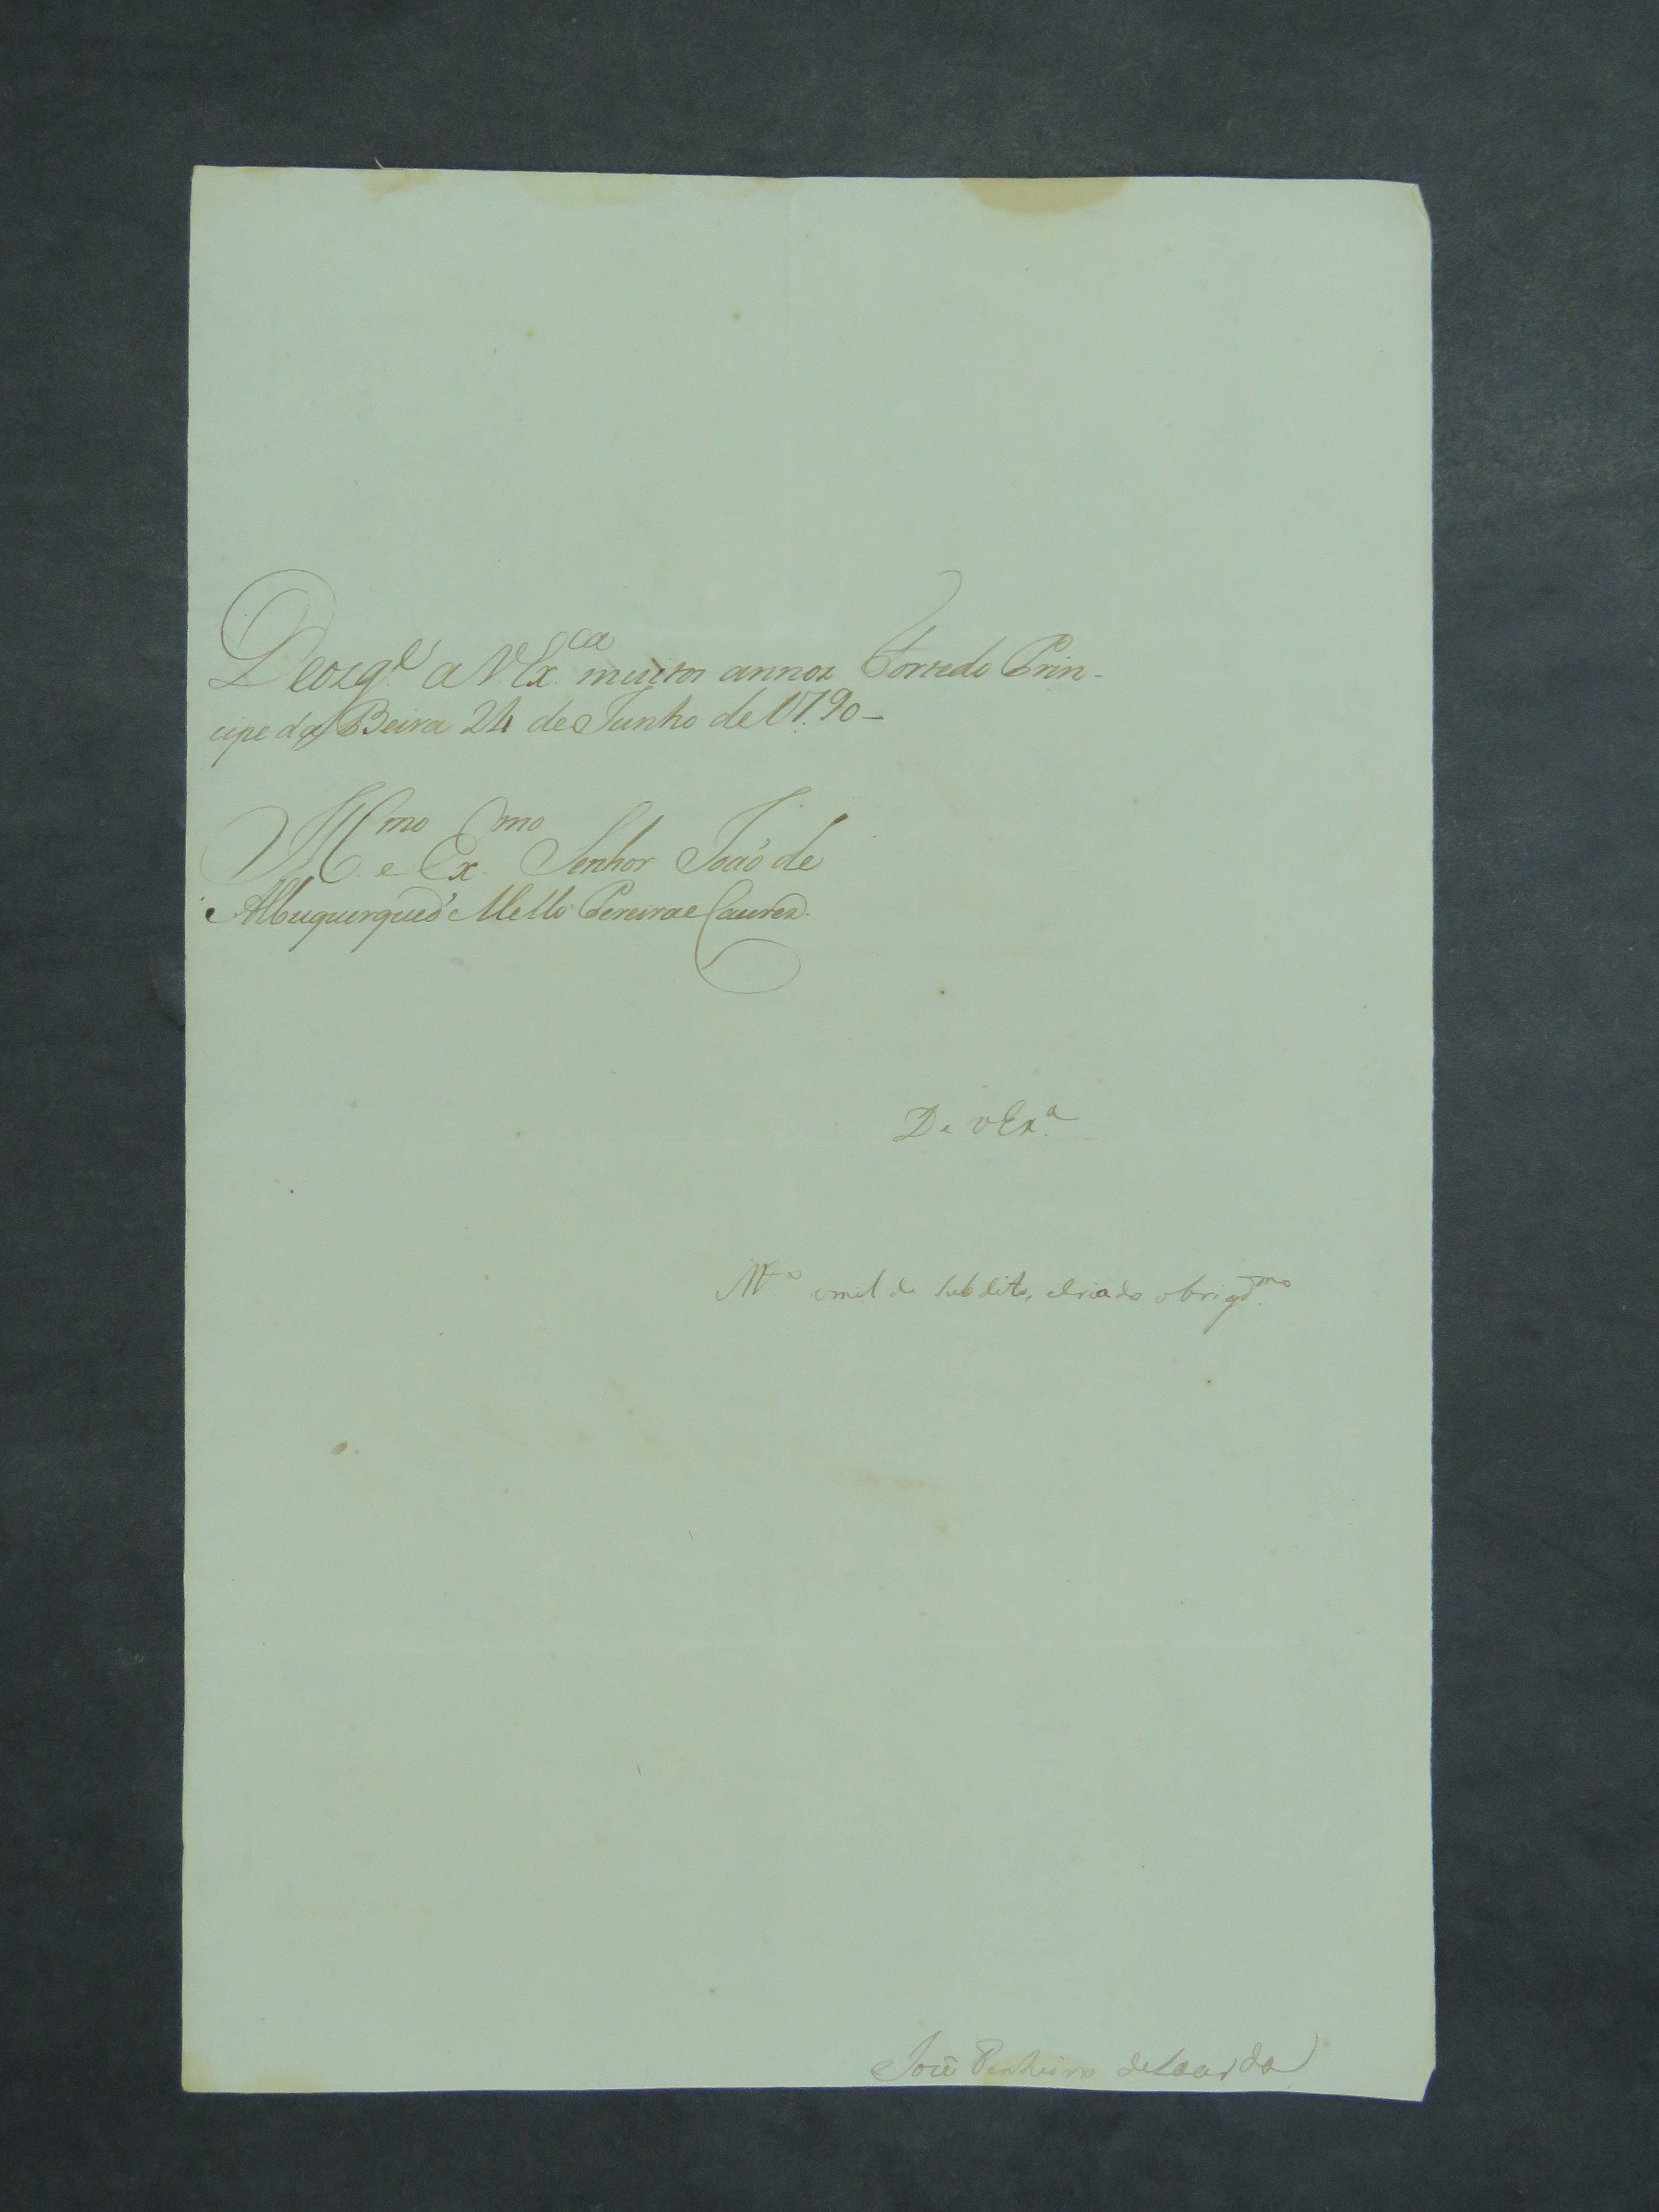 Deos g.e a V. Ex.ca muitos annos Forte do Prin-
cipe da Beira 24 de Junho de 1790_
Ill.mo e Ex.mo Senhor João de
Albuquerque d' Mello Pereira e Caceres.
De v Ex.a
M.to umilde subdito, e criado obrigd.mo
José Pinheiro de Lacerda